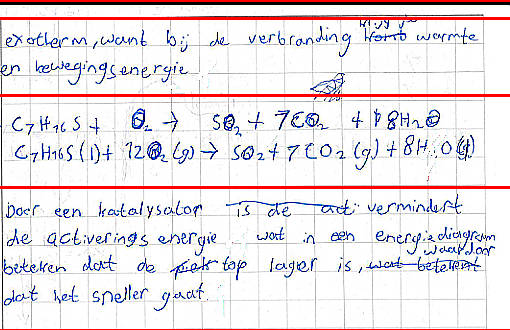 krijg je
exotherm, want bij de verbranding warmte
en bewegingsenergie
C7H16S + O2 → SO2 + 7CO2 + 8H2O
C7H16S (l) + 12O2 (g) → SO2 + 7CO2 (g) + 8H2O (g)
Door een katalysator is de acti vermindert
de activerings energie wat in een energiediagram
waardoor
beteken dat de piek top lager is, wat betekent
dat het sneller gaat.